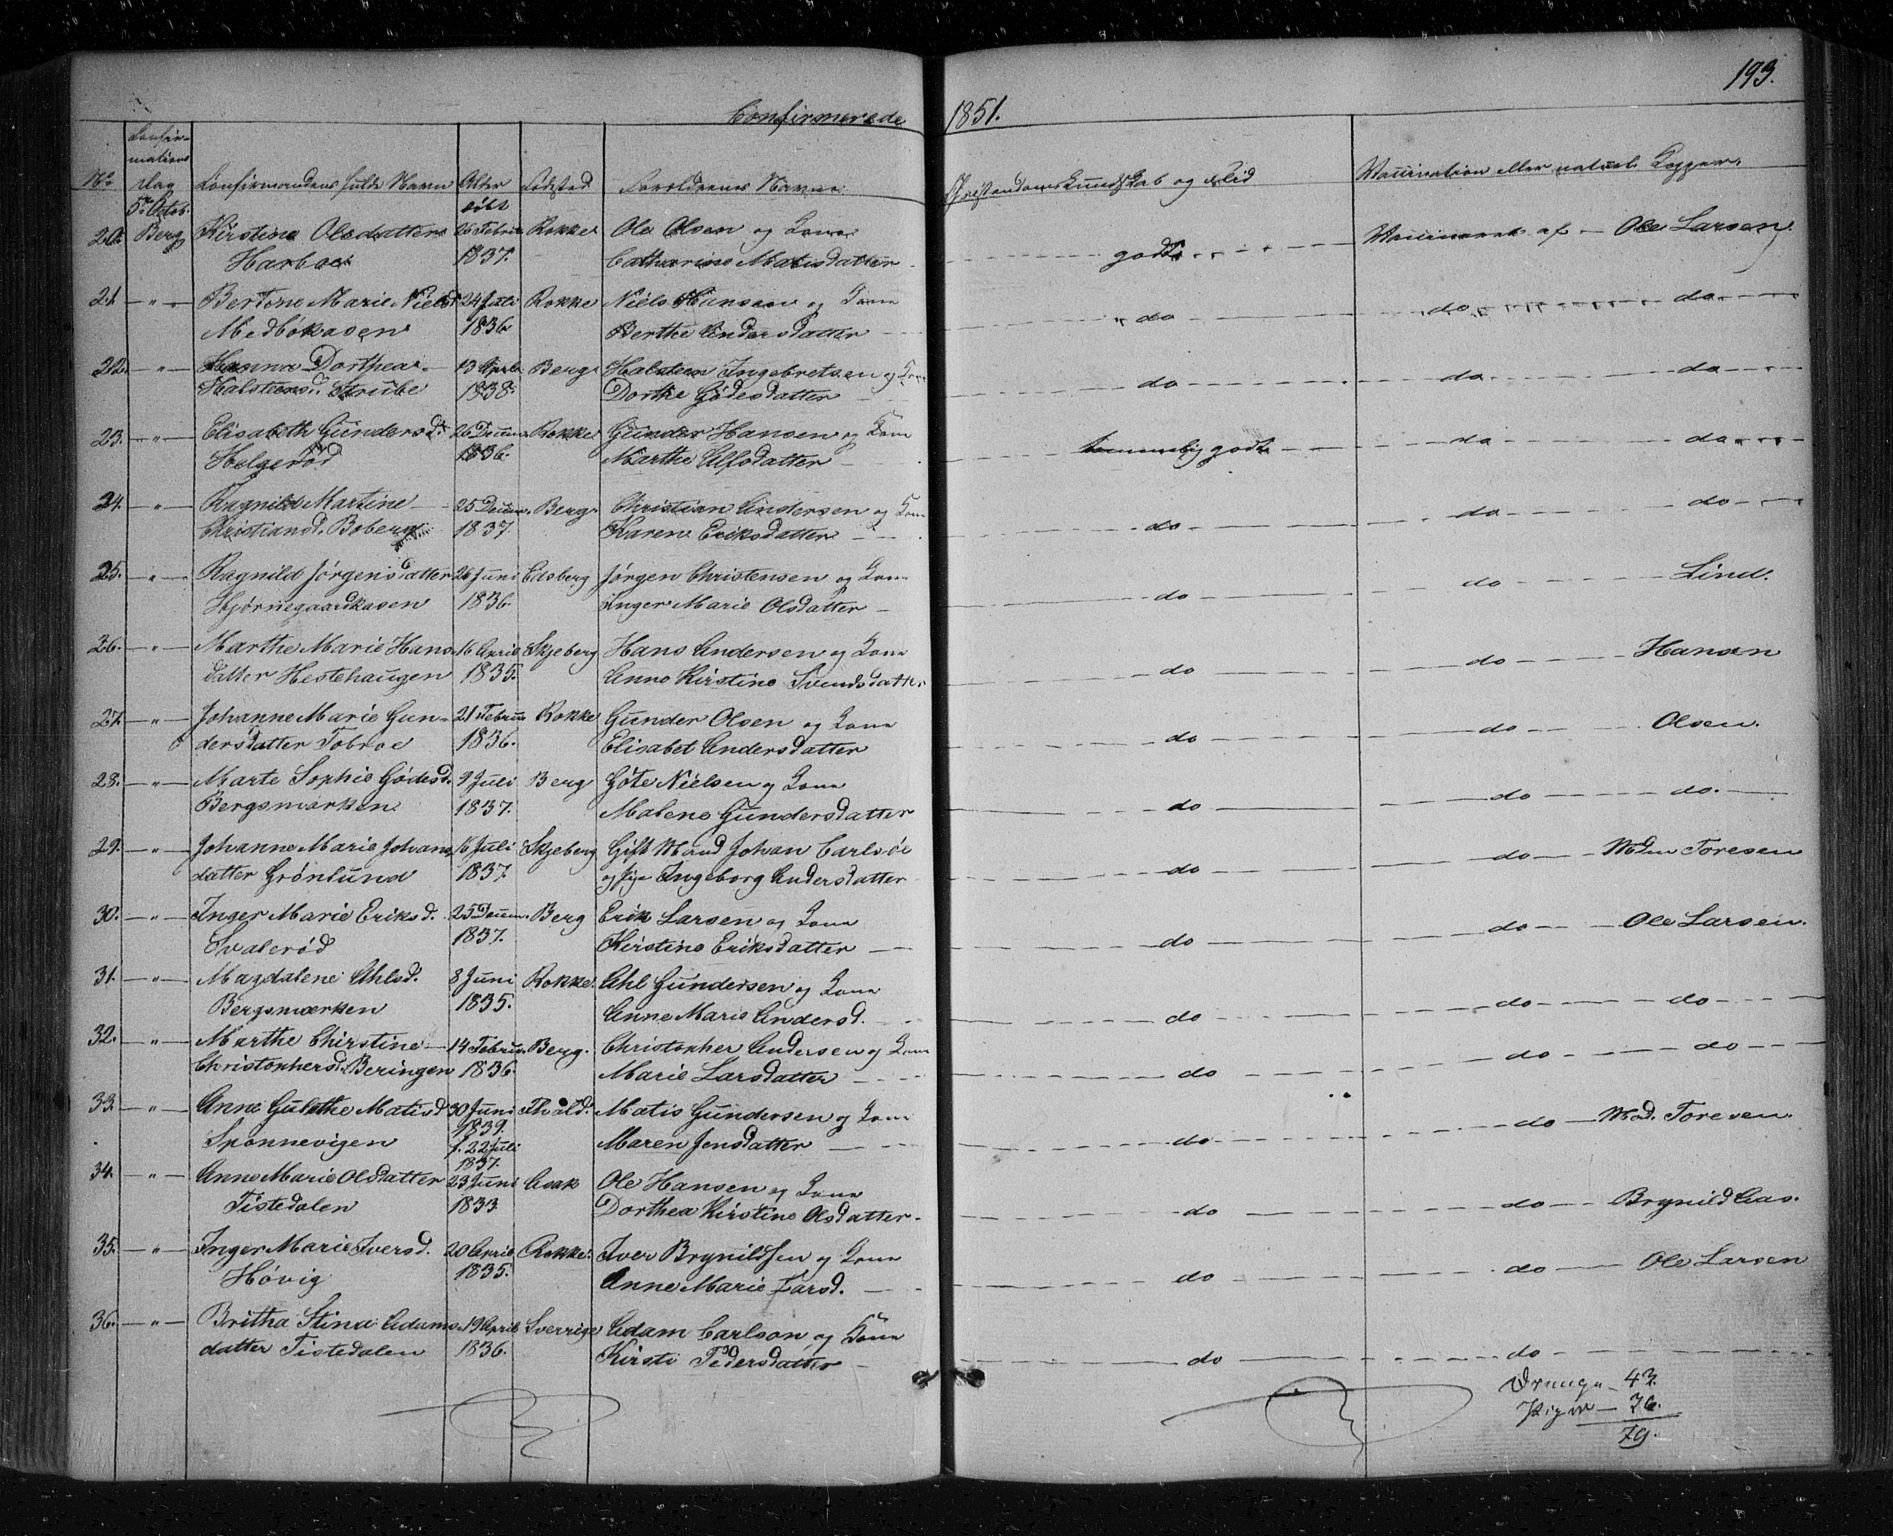 193.
Confirmerede 1851.
No Confirmations Dag Confirmandens fulde Navn Alter Födested Foreldrenes Navne Christendoms Kundskab og Flid Vaccination eller naturl. Kopper.
5te Octob. födt
20. Berg Kirstine Olsdatter 26 Febru Rokke Ole Olsen og Kone godt Vaccineret af Ole Larsen
1837. Catharine Matisdatter
21 " Bertone Marie Nielsd 24 Juli Rokke Niels Hansen og Kone do do do
Medbökasen 1836 Berthe Andersdatter
22. " Hanna Dorthea 13 April Berg Halsteen Ingebretsen og Kone do do do
Halsteensd. Strube 1838. Dorthe Gödesdatter
23. " Elisabeth Gundersd. 26 Decem. Rokke Gunder Hansen og Kone temmelig godt do do
Helgeröd 1836. Marthe Alfsdatter
24. " Ragnild Martine 25 Decem. Berg Christian Andersen og Kone do do do
Christiand. Boberg 1837 Karen Eriksdatter
25. " Ragnild Jörgensdatter 26 Juni Edsberg Jörgen Christensen og Kone do do Lind.
Hjörnegaardkasen 1836. Inger Marie Olsdatter
26. " Marthe Marie Hans 16 April Skjeberg Hans Andersen og Kone do do Hansen
datter Hestehaugen 1835. Anne Kirstine Svendsdatter
27. " Johanne Marie Gun- 21 Februar Rokke Gunder Olsen og Kone do do Olsen.
dersdatter Tobroe 1836. Elisabet Andersdatter
28. " Marte Sophie Gödesd. 9 Juli Berg Göte Nielsen og Kone do do do.
Bergsmarken 1837. Malene Gundersdatter
29. " Johanne Marie Johans 16 Juli Skjeberg Gift Mand Johan Carlsöe do do Mdm Toresen
datter Grönlund 1837. og Pige Ingeborg Andersdatter
30. " Inger Marie Eriksd. 25 Decem. Berg Erik Larsen og Kone do do Ole Larsen.
Svaleröd 1837. Kirstine Eriksdatter
31. " Magdalene Ahlsd. 8 Juni Rokke. Ahl Gundersen og Kone do do do
Bergsmarken 1835. Anne Marie Andersd.
32. " Marthe Chirstine 14 Februar Berg. Christopher Andersen og Kone do do do
Christophersd. Beringen 1836 Marie Larsdatter
33. " Anne Gulethe Matisd 30 Juni Thvald. Matis Gundersen og Kone do do Mad. Toresen.
Sponnevigen 1839. f. 22 Juli 1837. Maren Jensdatter
34. " Anne Marie Olsdatter 23 Juni Asak Ole Hansen og Kone do do Brynild Aas.
Tistedalen 1833 Dorthea Kirstine Olsdatter
35. " Inger Marie Iversd. 20 April Rokke. Iver Brynildsen og Kone do do Ole Larsen
Hövig 1835. Anne Marie Larsd.
36. " Britha Stina Adams 19 April Sverrige Adam Carlson og Kone do do
datter Tistedalen 1836. Kirsti Pedersdatter
Drenge 43.
Piger 36.
79.